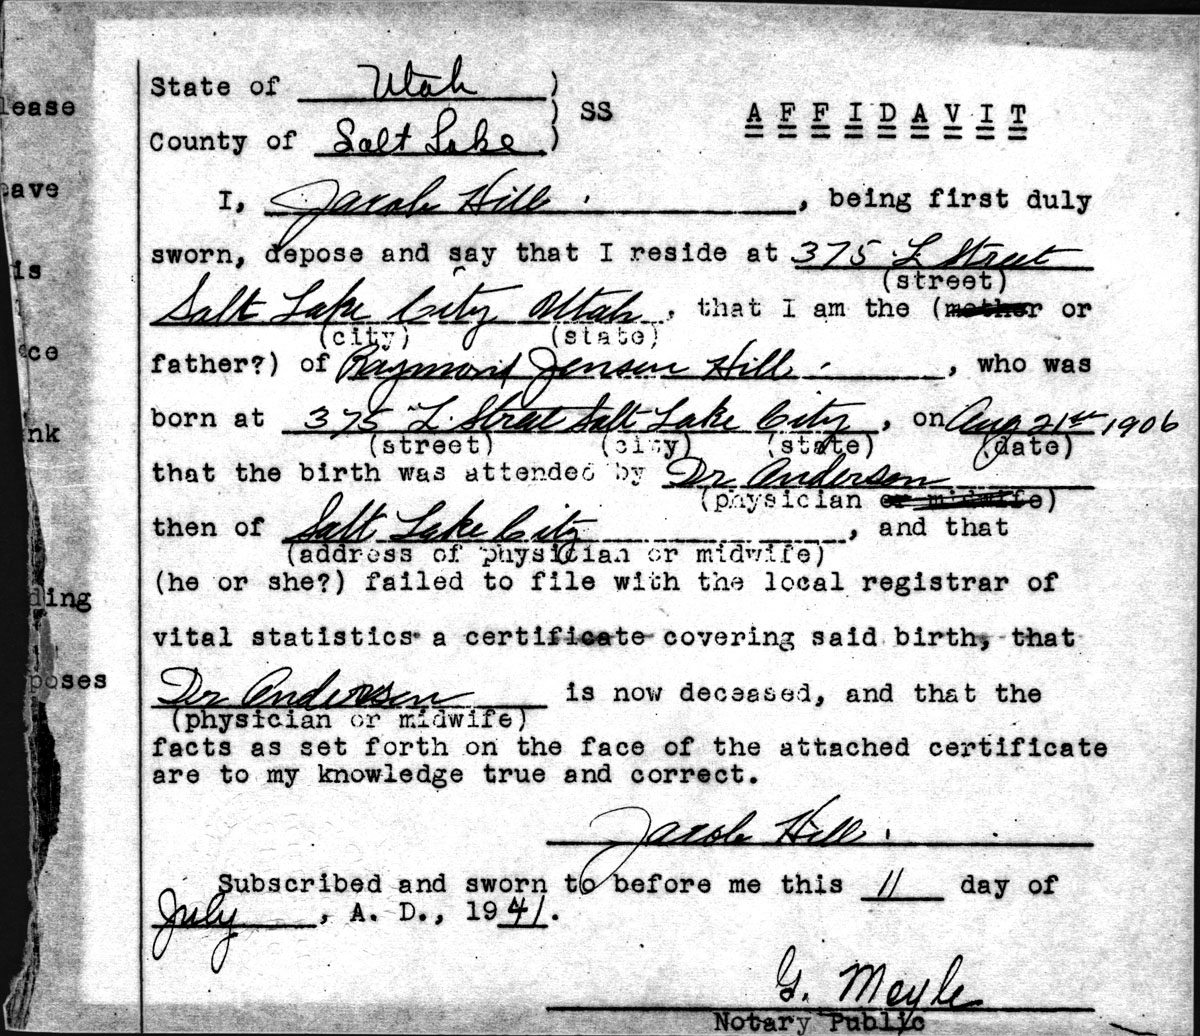 State of Utah )
SS A F F I D A V I T
County of Salt Lake )
I, Jacob Hill , being first duly
sworn, depose and say that I reside at 375 L Street
(street)
Salt Lake City Utah , that I am the (mother or
(city) (state)
father?) of Raymond Jensen Hill , who was
born at 375 L. Street Salt Lake City , on Aug 21st 1906
(street) (city) (state) (date)
that the birth was attended by Dr Anderson
(physician or midwife)
then of Salt Lake City , and that
(address of physician or midwife)
(he or she?) failed to file with the local registrar of
vital statistics a certificate covering said birth, that
Dr Anderson is now deceased, and that the
(physician or midwife)
facts as set forth on the face of the attached certificate
are to my knowledge true and correct.
Jacob Hill
Subscribed and sworn to before me this 11 day of
July , A. D., 1941.
G. Meyle
Notary Public
lease
eave
is
ce
nk
ding
poses